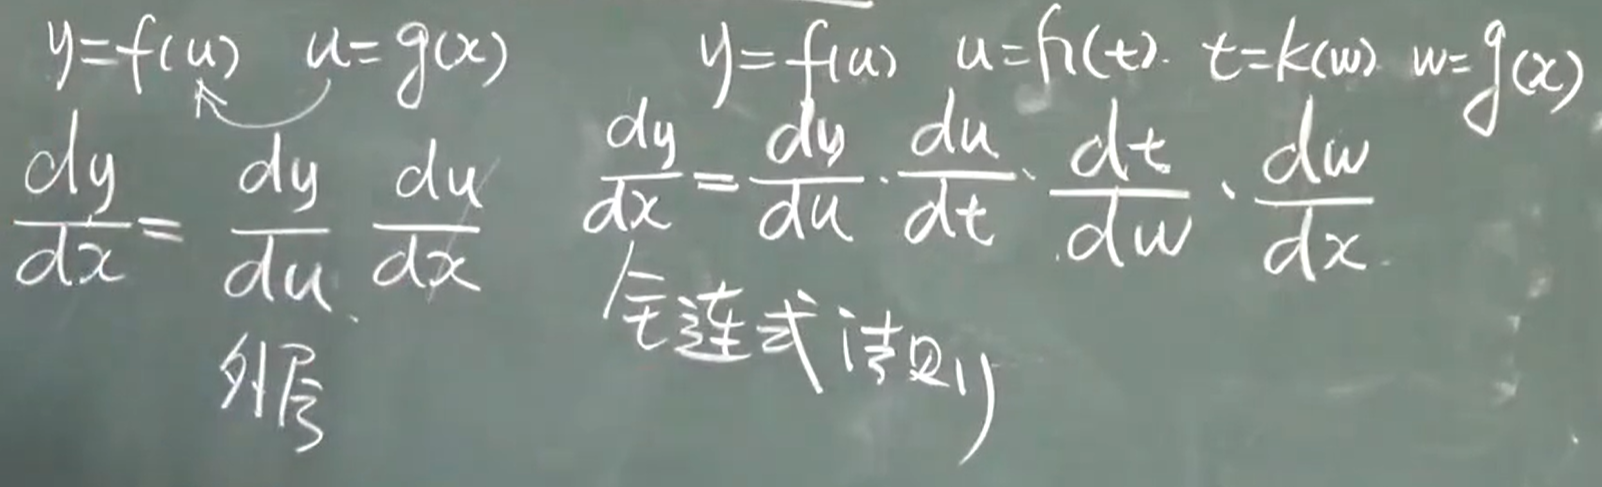 y=f(u) u=g(x)
dy/dx = dy/du du/dx
外层
y=f(u) u=h(t). t=k(w) w=g(x)
dy/dx = dy/du · du/dt · dt/dw · dw/dx
连式法则